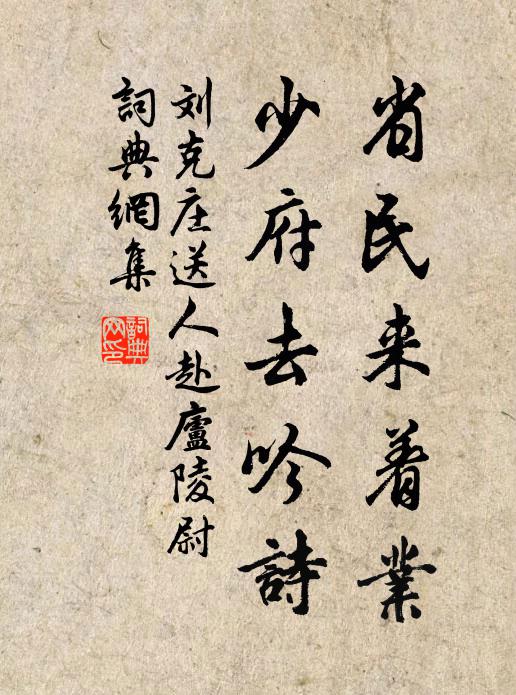 省民来着業
少府去吟詩
刘克庄送人赴廬陵尉
詞典網集
詞典
网印